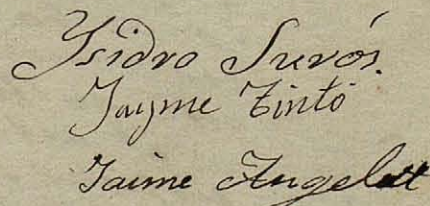 Ysidro Surós.
Jayme Tintó
Jaime Angelet